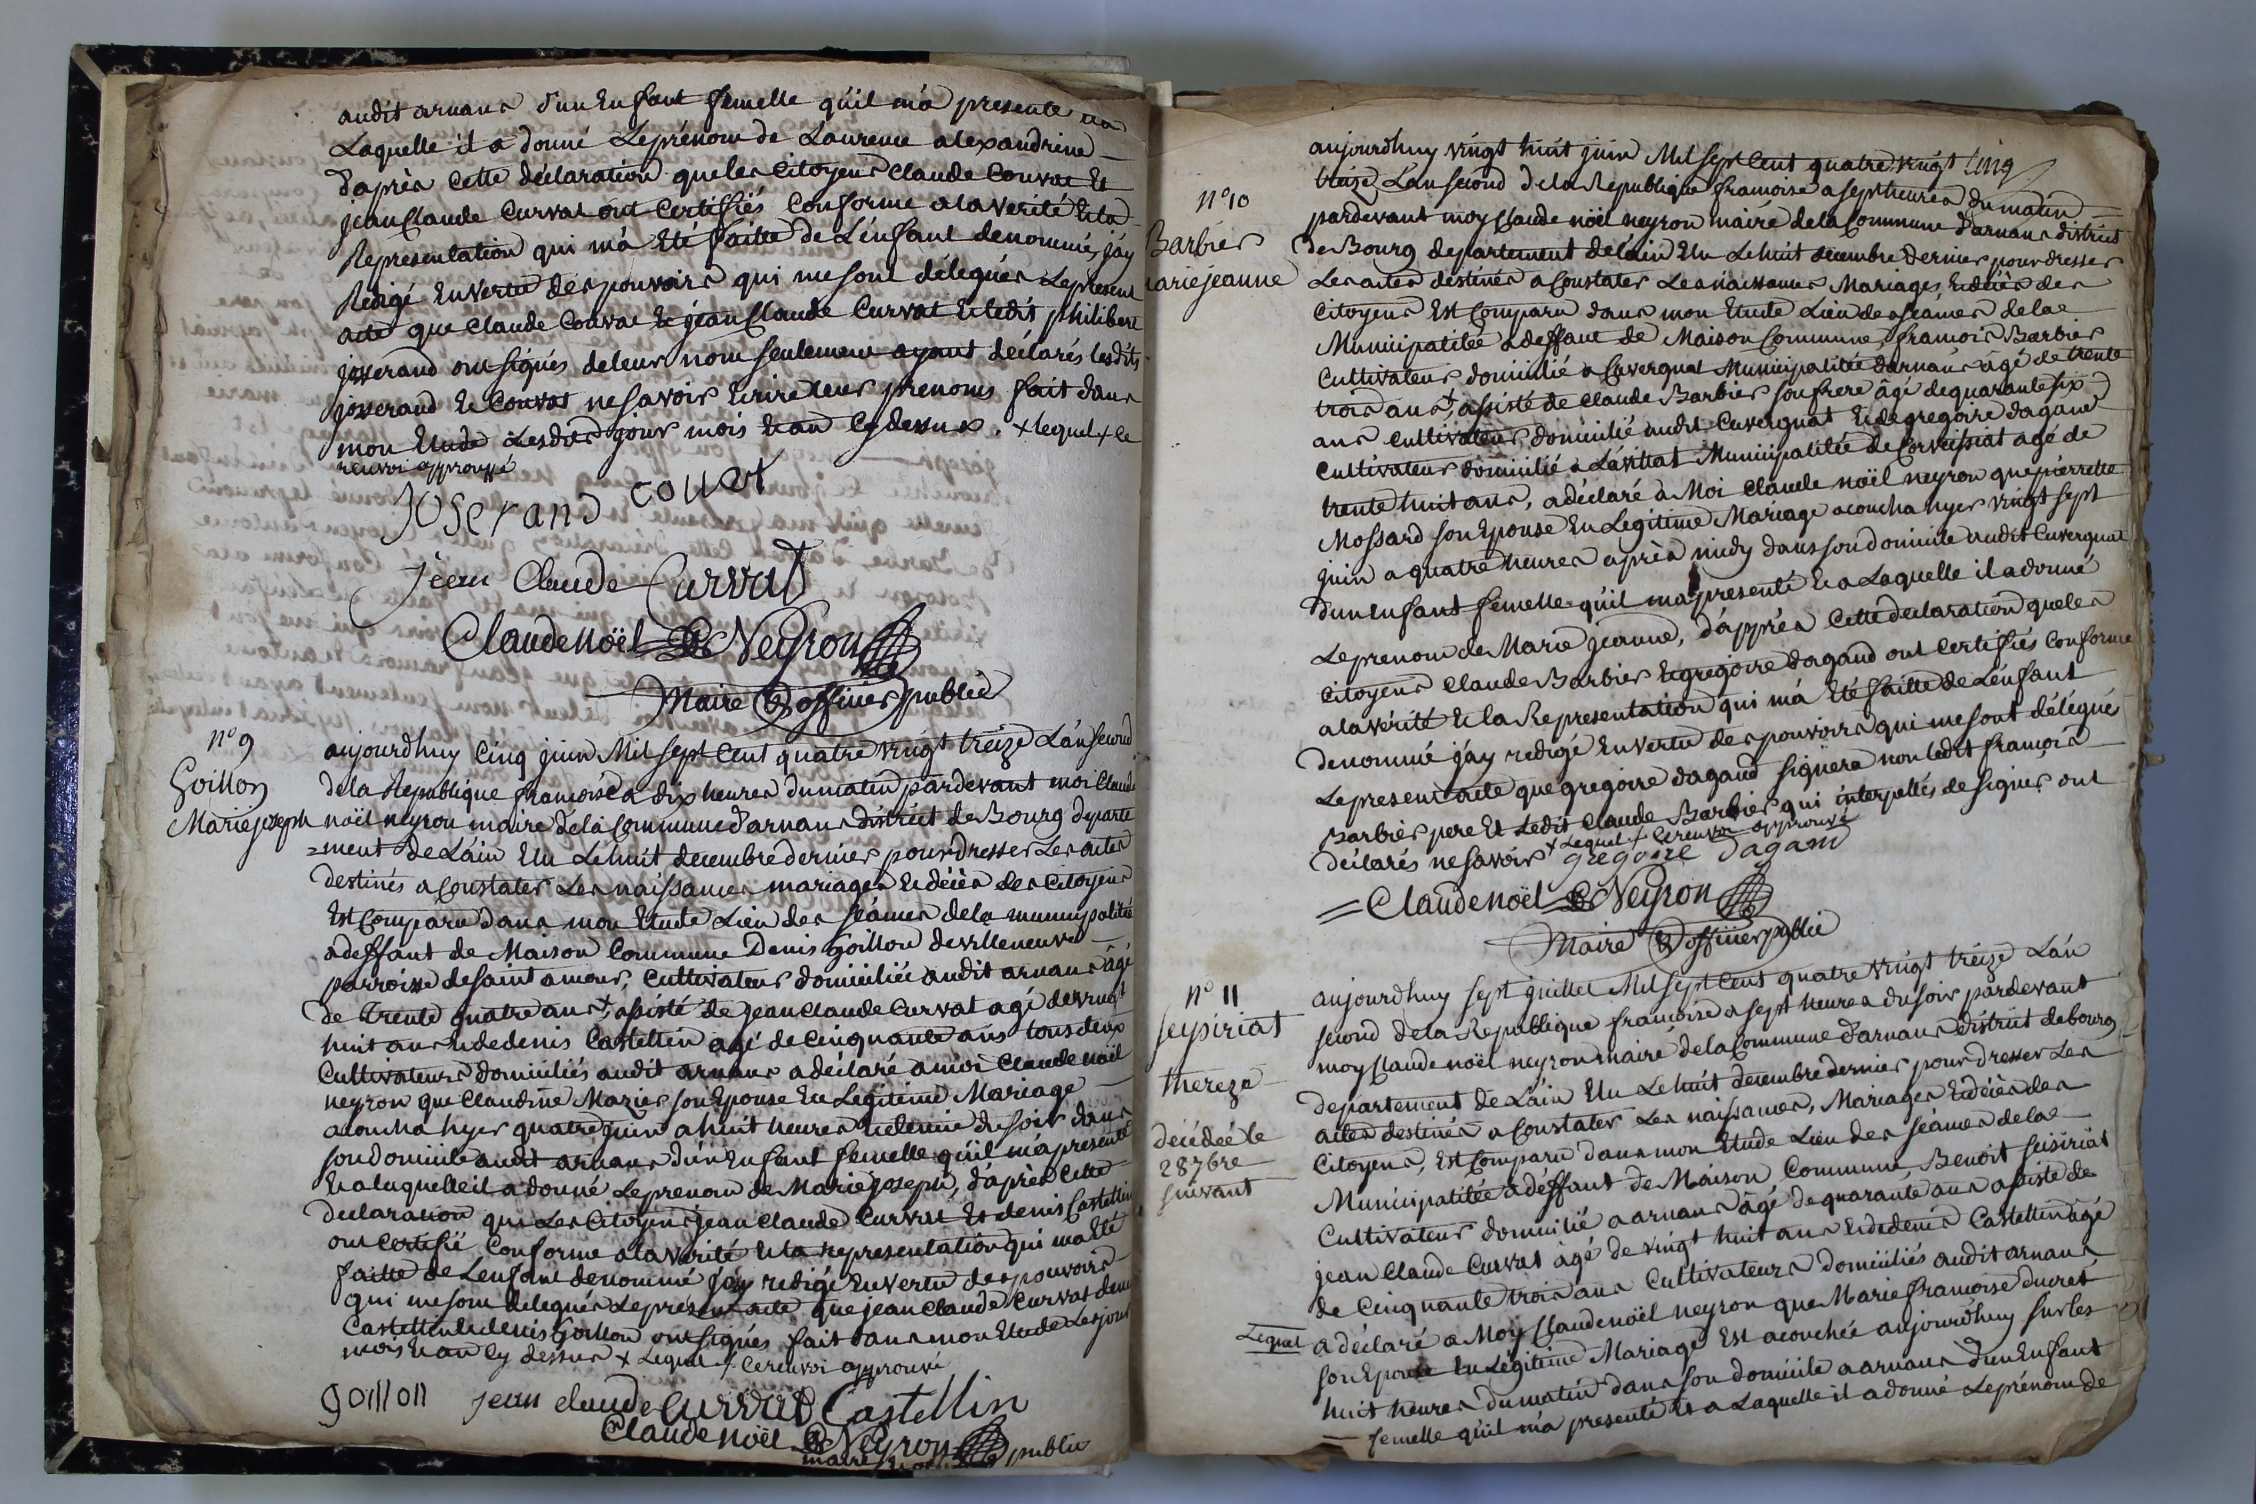 audit arnans d'un Enfant femelle qu'il m'a presenté Et a
Laquelle il a donné Le prénom de Laurence alexandrine
d'après cette déclaration que les citoyens Claude Couvat Et
jean Claude Curvat ont certifiés conforme a la verité Et la
Représentation qui m'a Eté faitte de L'enfant denommé, j'ay
Redigé En vertu des pouvoirs qui me sont délegués Le present
acte que Claude Couvat Et jean Claude Curvat Et ledit philibert
josserand ont signés de leur nom seulement ayant déclarés lesdits
josserand Et Couvat ne savoir Ecrire leurs prenoms fait dans
mon Etude Lesdits jour mois Et an Cy dessus. + lequel + ce
renvoi approuvé
Joserand couat
jean Claude Curvat
Claude Noël Neyron
Maire & officier public
n° 9
Goillon
Marie joseph
aujourdhuy Cinq juin Mil sept Cent quatre vingt treize L'an second
de la Republique françoise a dix heures du matin pardevant moi Claude
noël neyron maire de la Commune d'arnans district de Bourg departe
=ment de L'ain Elu Le huit decembre dernier pour dresser Les actes
destinés a Constater Les naissances mariages Et décès des Citoyens
Est Comparu dans mon Etude Lieu des séances de la municipalité
a deffaut de Maison Commune Denis Goillon de villeneuve
parroisse de saint amour, Cultivateur domicilié audit arnans âgé
de Trente quatre ans +, assisté de jean Claude Curvat agé de vingt
huit ans Et de denis Castellin agé de Cinquante ans tous deux
Cultivateurs domiciliés audit arnans a déclaré a moi Claude noël
neyron que Claudine Mazier son Epouse En Legitime Mariage
acoucha hyer quatre juin a huit heures Et demie du soir dans
son domicile audit arnans d'un Enfant femelle qu'il m'a presenté
Et a laquelle il a donné Le prenom de Marie joseph, d'après Cette
declaration que Les Citoyens jean Claude Curvat Et denis Castellin
ont certifié Conforme a la vérité Et la representation qui m'a Eté
faitte de L'enfant denommé j'ay redigé En vertu des pouvoirs
qui me sont delegués Le présent acte que jean Claude Curvat denis
Castellin Et denis Goillon ont signés fait dans mon Etude Les jour
mois Et an Cy dessus + Lequel + Ce renvoi approuvé
goillon jean claude curvat Castellin
Claude Noël Neyron
maire public
Cinq
n° 10
Barbier
Marie jeanne
aujourdhuy vingt huit juin Mil sept Cent quatre vingt
treize L'an second de la Republique françoise a sept heures du matin
pardevant moy Claude noël neyron maire de la Commune d'arnans district
de Bourg departement de L'ain Elu Le huit decembre dernier pour dresser
Les actes destinés a Constater Les naissances Mariages Et décès des
Citoyens Est Comparu dans mon Etude Lieu des séances de la
Municipalitée a deffaut de Maison Commune françois Barbier
Cultivateur domicilié a Cuvergnat Municipalitée d'arnans âgé de trente
trois ans +, assisté de Claude Barbier son frere âgé de quarante six
ans cultivateur domicilié audit Cuvergnat Et de gregoire dagand
Cultivateur domicilié a Larthat Municipalitée de Corveyssiat agé de
trente huit ans, a déclaré à Moi Claude noël neyron que pierrette
Mossard son Epouse En Legitime Mariage acoucha hyer vingt sept
juin a quatre heures après midy dans son domicile audit Cuvergnat
d'un Enfant femelle qu'il m'a presenté Et a Laquelle il a donné
Le prenom de Marie jeanne, d'après Cette declaration que les
Citoyens Claude Barbier Et gregoire dagand ont certifiés Conforme
a la vérité Et la Representation qui m'a Eté faitte de L'enfant
denommé j'ay redigé En vertu des pouvoirs qui me sont délégués
Le present acte que gregoire dagand signera non ledit françois
Barbier pere Et Ledit Claude Barbier qui interpellés de signer ont
déclarés ne savoir + Lequel + Ce renvoi approuvé
gregoire dagand
Claude Noël Neyron
Maire & officier public
n° 11
seysiriat
thereze
décédée le
28 7bre
suivant
aujourdhuy sept juillet Mil sept Cent quatre vingt treize L'an
second de la Republique françoise a sept heures du soir pardevant
moy Claude noël neyron maire de la Commune d'arnans district de bourg
departement de L'ain Elu Le huit decembre dernier pour dresser Les
actes destinés a Constater Les naissances, Mariages Et décès des
Citoyens, Est Comparu dans mon Etude Lieu des séances de la
Municipalitée a deffaut de Maison Commune, Benoit seisiriat
Cultivateur domicilié a arnans âgé de quarante ans assisté de
jean Claude Curvat âgé de vingt huit ans Et de denis Castellin âgé
de Cinquante trois ans Cultivateurs domiciliés audit arnans
Lequel a déclaré a Moy Claude noël neyron que Marie françoise ducret
son Epouse En Légitime Mariage Est acouchée aujourdhuy sur les
huit heures du matin dans son domicile a arnans d'un Enfant
femelle qu'il m'a presenté Et a Laquelle il a donné Le prénom de